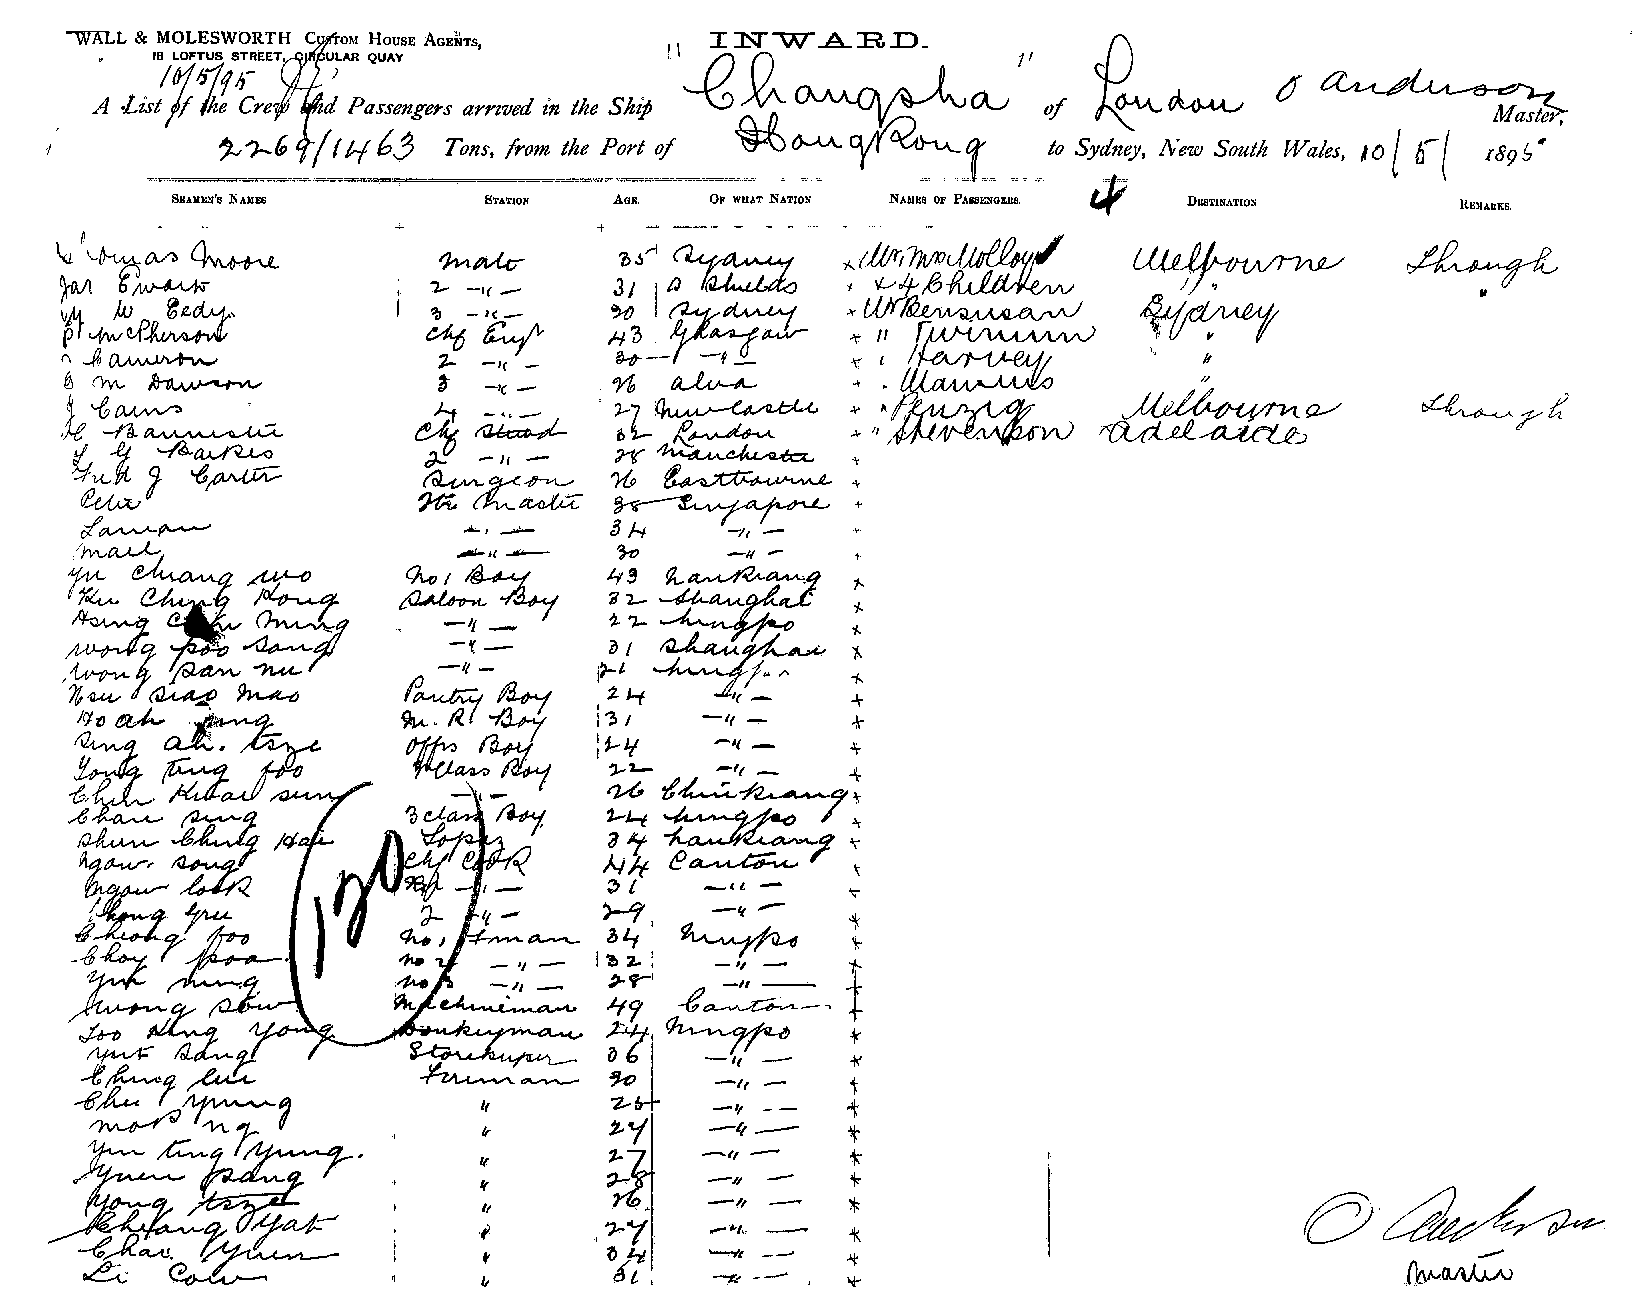 WALL & MOLESWORTH CUSTOM HOUSE AGENTS,
18 LOFTUS STREET, CIRCULAR QUAY
INWARD.
10/5/95
A List of the Crew and Passengers arrived in the Ship "Changsha" of London O Anderson Master,
2269/1463 Tons, from the Port of Hongkong to Sydney, New South Wales, 10/5/1895
SEAMEN'S NAMES STATION AGE. OF WHAT NATION NAMES OF PASSENGERS. 4 DESTINATION REMARKS.
Thomas Moore Mate 35 Sydney Mr Mrs Molloy Melbourne Through
Jas Ewart 2 -"- 31 S Shields & 4 Children "
W Eedy 3 -"- 30 Sydney Mr Bensusan Sydney
McPherson Chf Engr 43 Glasgow " Twinum "
Cameron 2 -"- 30 -"- " Harvey "
M Dawson 3 -"- 26 Alva "
J Cains 4 -"- 27 Newcastle " Penzig Melbourne Through
Bannister Chf Stwd 32 London " Stevenson Adelaide
2 -"- 28 Manchester
Fred J Carter Surgeon 26 Eastbourne
Peter Master 38 Singapore
Laman -"- 34 -"-
-"- 30 -"-
Yu Chiang Wo No 1 Boy 43 Nankiang
Ku Ching Kong Saloon Boy 32 Shanghai
Tsing Ming -"- 22 Ningpo
Wong Poo Sang -"- 31 Shanghai
Wong San Nu -"- 21 Ningpo
Hsu Siao Mao Pantry Boy 24 -"-
Ho Ah M. R. Boy 31 -"-
Sing Ah. Tsze Offrs Boy 24 -"-
Yong Ting Foo 2 Class Boy 22 -"-
Chin Kwai Sung -"- 26 Chinkiang
Chan Sing 3 class Boy 24 Ningpo
Shun Ching Hai 34 Nankiang
Ngaw Song Chf Cook 44 Canton
Ngaw Look -"- 31 -"-
Chong Yu 2 -"- 29 -"-
Cheong Foo No 1 Fman 34 Ningpo
Choy Poo No 2 -"- 32 -"-
Yuk Ning No 3 -"- 28 -"-
Kwong Sow Machineman 49 Canton
Too King Yong Donkeyman 24 Ningpo
Yut Sang Storekeeper 36 -"-
Ching Lui Fireman 30 -"-
Chu Yung " 25 -"-
Mok Ng " 24 -"-
Yin Ting Yung. " 27 -"-
Yuen Pang " 28 -"-
Yong Tsze " 26 -"-
Yat " 24 -"-
Chao Yuen " 34 -"-
Li Cow " 31 -"-
(120)
O Anderson
Master